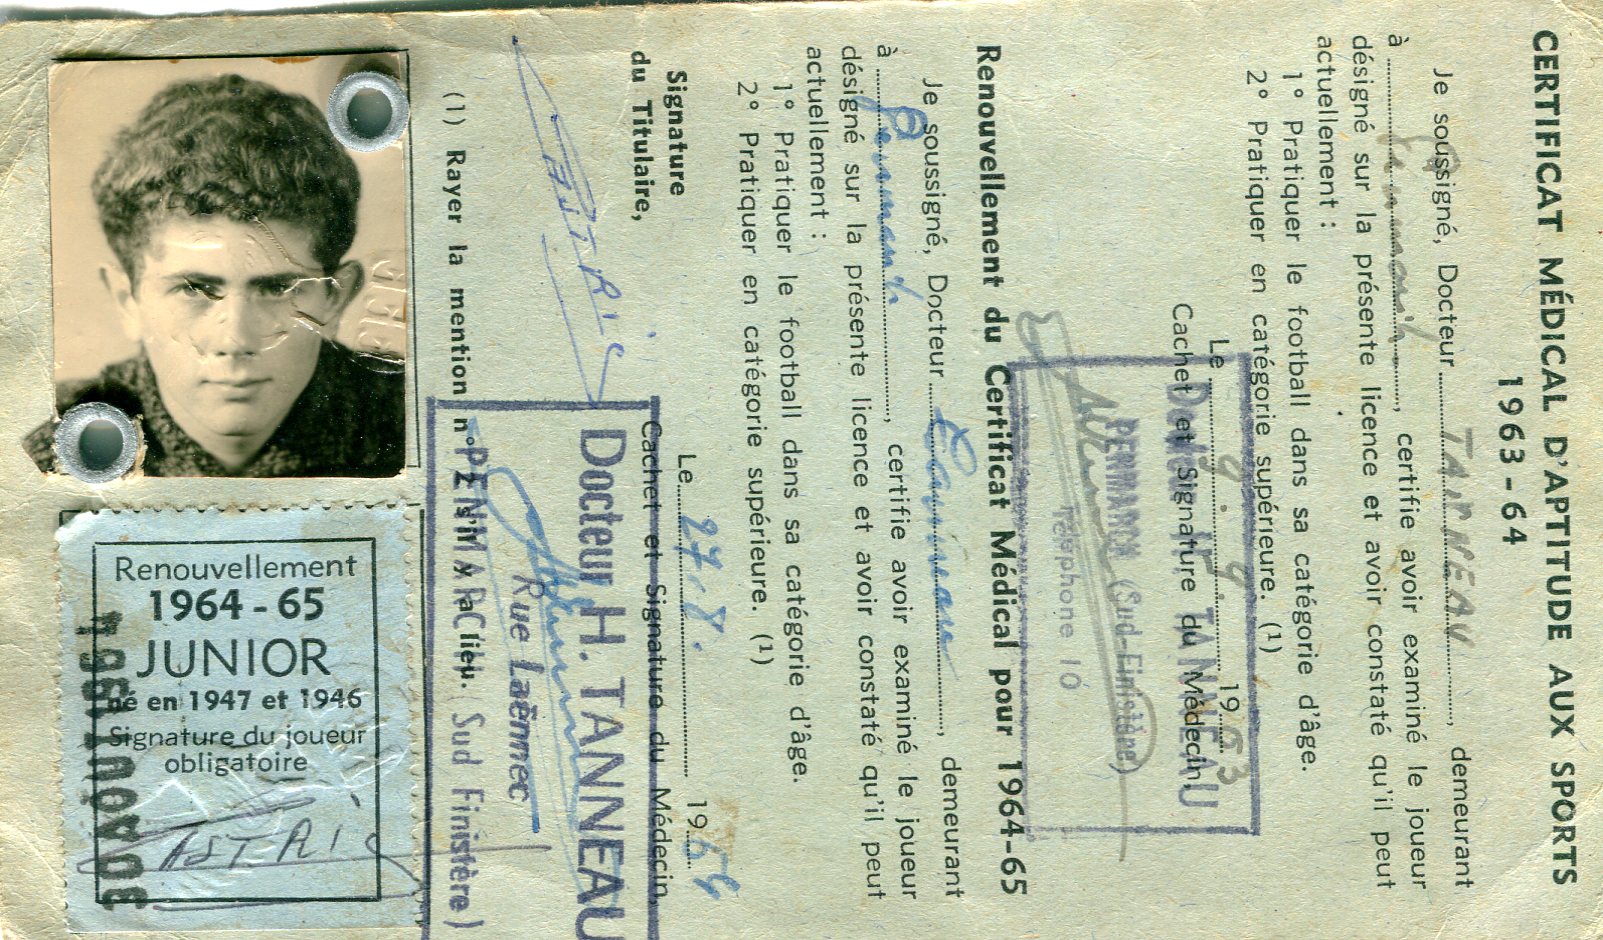 CERTIFICAT MÉDICAL D'APTITUDE AUX SPORTS
1963-64
Je soussigné, Docteur TANNEAU, demeurant
à Penmarch, certifie avoir examiné le joueur
désigné sur la présente licence et avoir constaté qu'il peut
actuellement :
1° Pratiquer le football dans sa catégorie d'âge.
2° Pratiquer en catégorie supérieure. (1)
Le 9.9. 1963
Cachet et Signature du Médecin,
Docteur H. TANNEAU
PENMARCH (Sud-Finistère)
Téléphone 10
Renouvellement du Certificat Médical pour 1964-65
Je soussigné, Docteur Tanneau, demeurant
à Penmarch, certifie avoir examiné le joueur
désigné sur la présente licence et avoir constaté qu'il peut
actuellement :
1° Pratiquer le football dans sa catégorie d'âge.
2° Pratiquer en catégorie supérieure. (1)
Le 27.8. 1964
Cachet et Signature du Médecin,
Docteur H. TANNEAU
Rue Laënnec
PENMARC'H (Sud Finistère)
Signature
du Titulaire,
ASTRIC
(1) Rayer la mention n° 2 s'il y a lieu.
Renouvellement
1964-65
JUNIOR
né en 1947 et 1946
Signature du joueur
obligatoire
ASTRIC
30 AOUT 1964